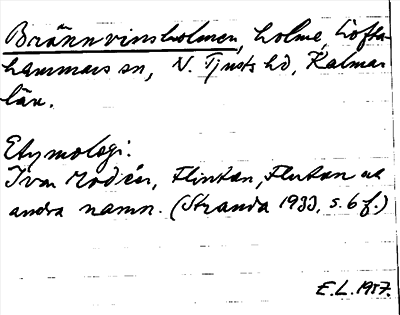 Brännvinsholmen, holme, Lofta
hammars sn, N. Tjusts hd, Kalmar
län.
Etymologi:
Ivar Modéer, Flintan, Flutan ock
andra namn. (Stranda 1933, s. 6 f.)
E.L. 1957.